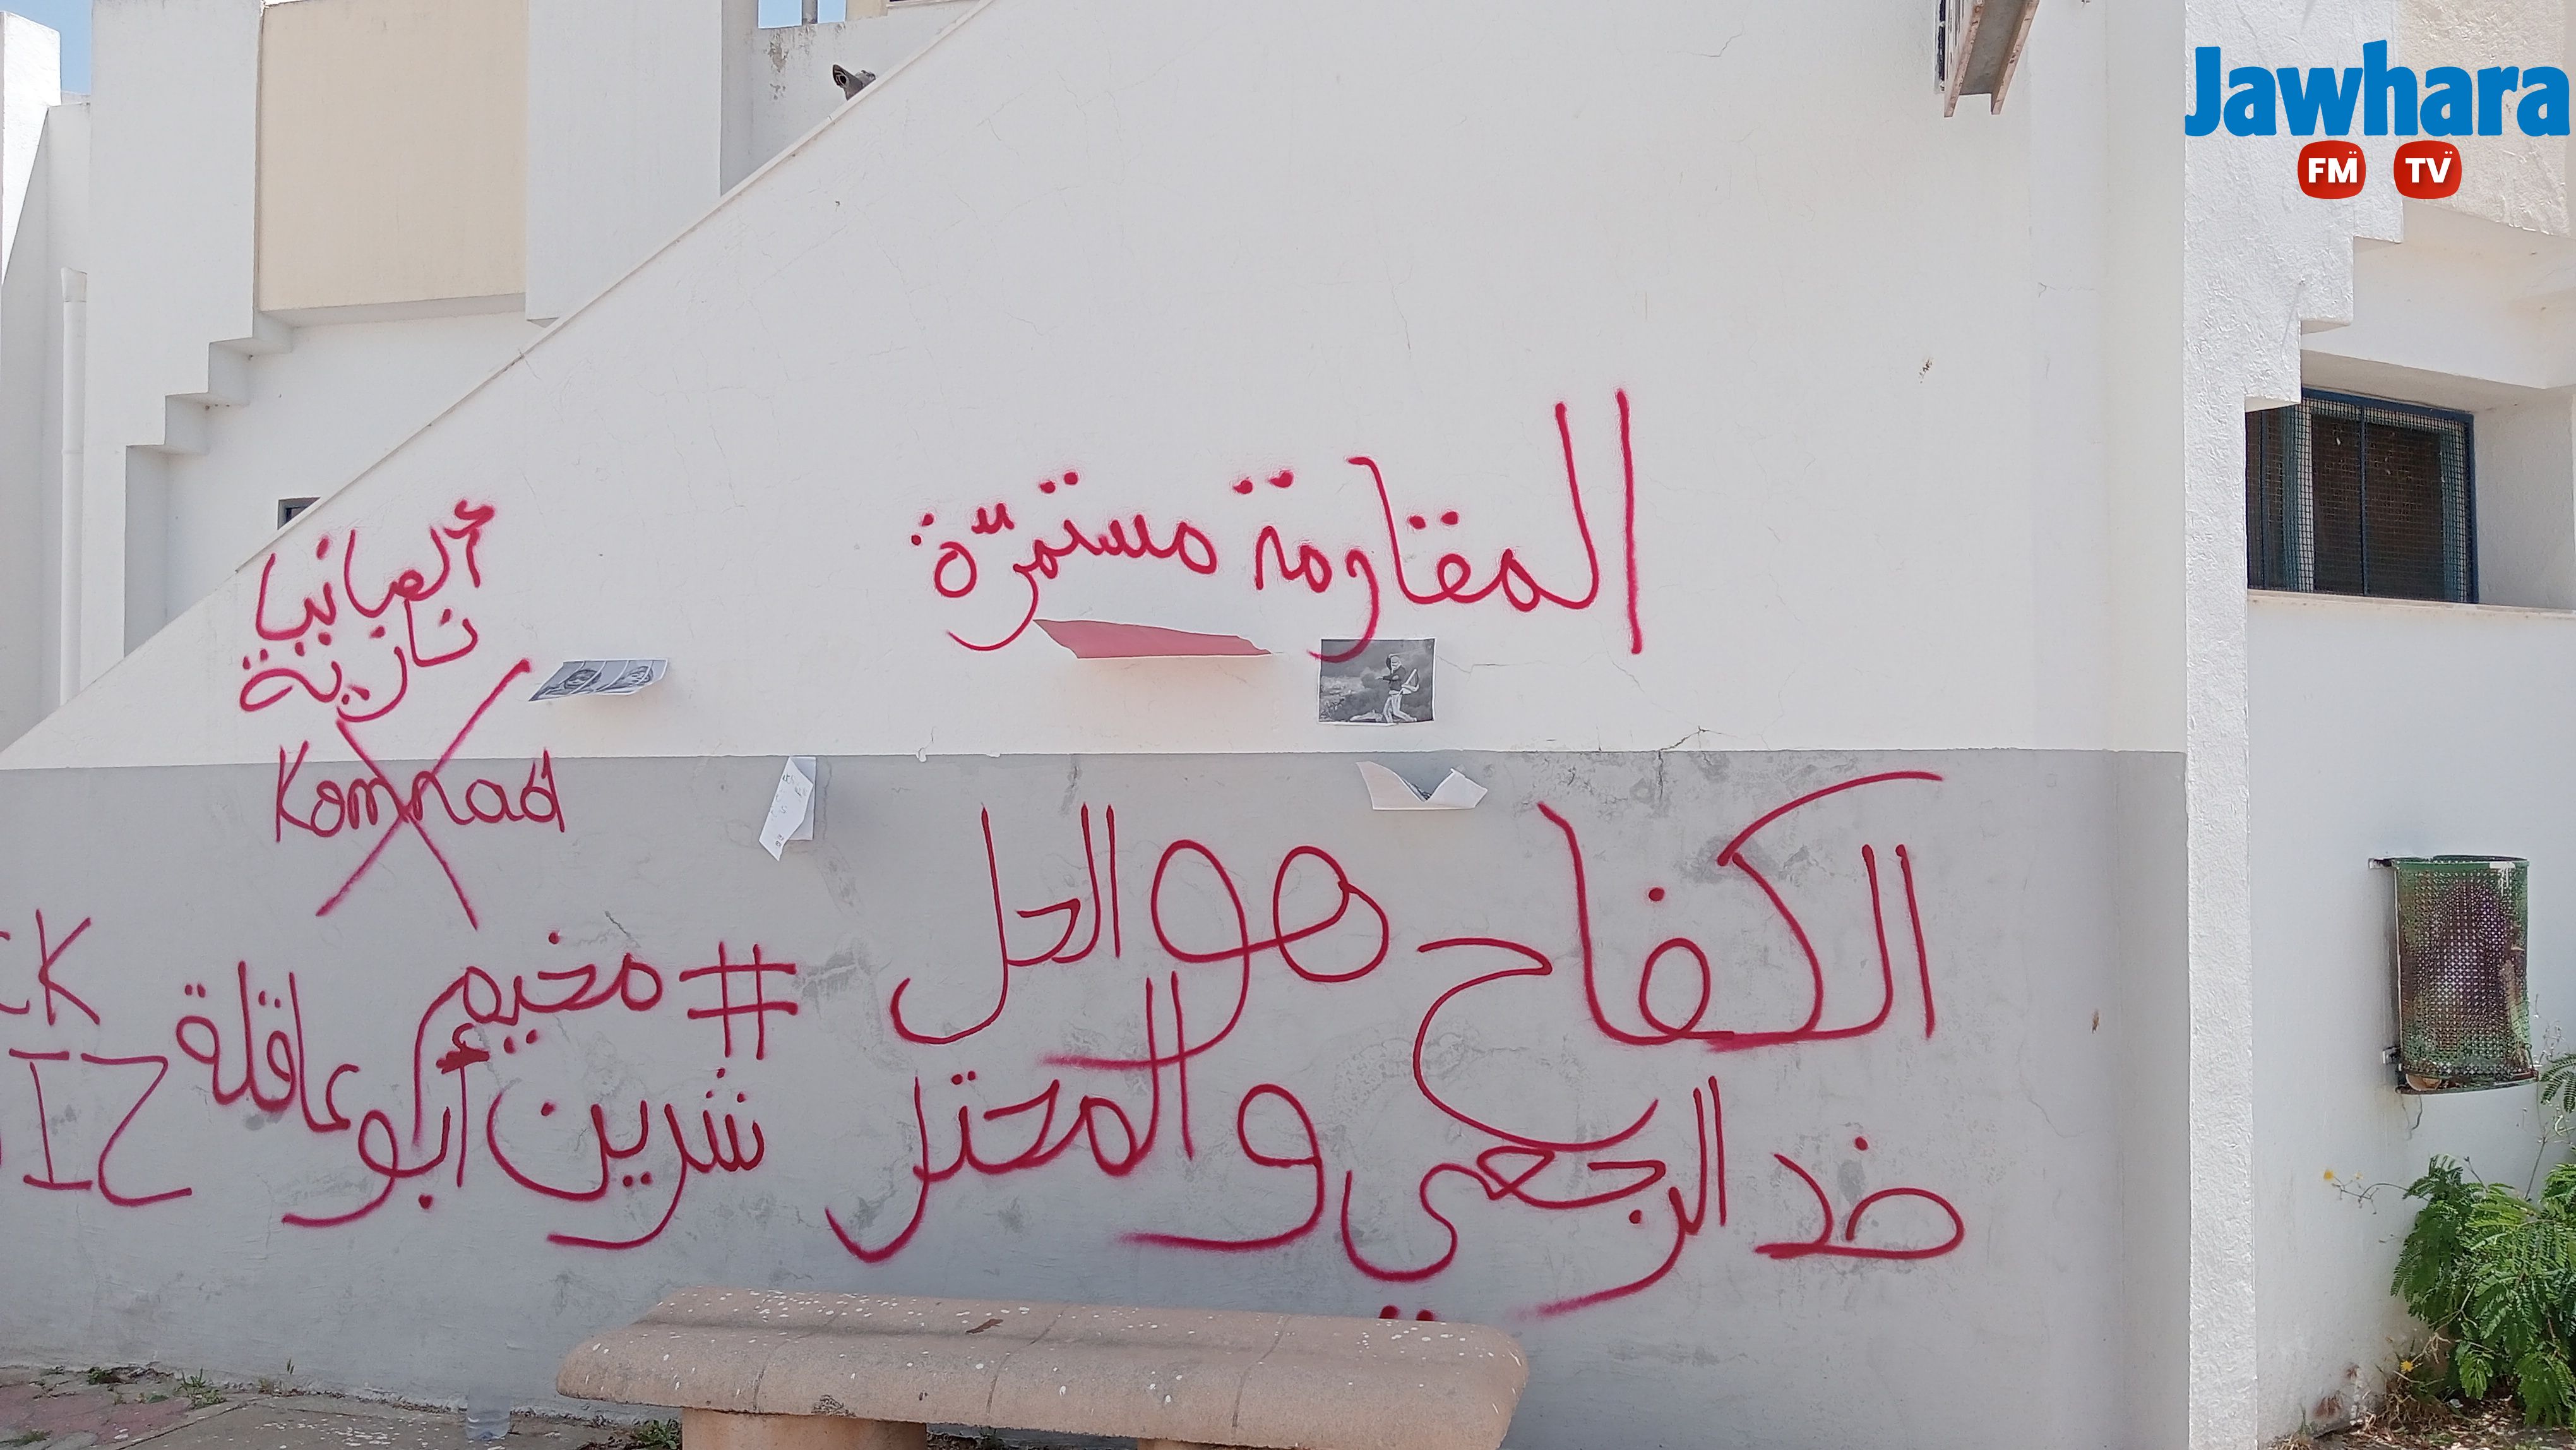 Jawhara
FM TV
المقاومة مستمرّة
ألمانيا
نازية
Konrad
الكفاح هو الحل
ضد الرجعي و المحتل
# مخيم
شرين أبو عاقلة